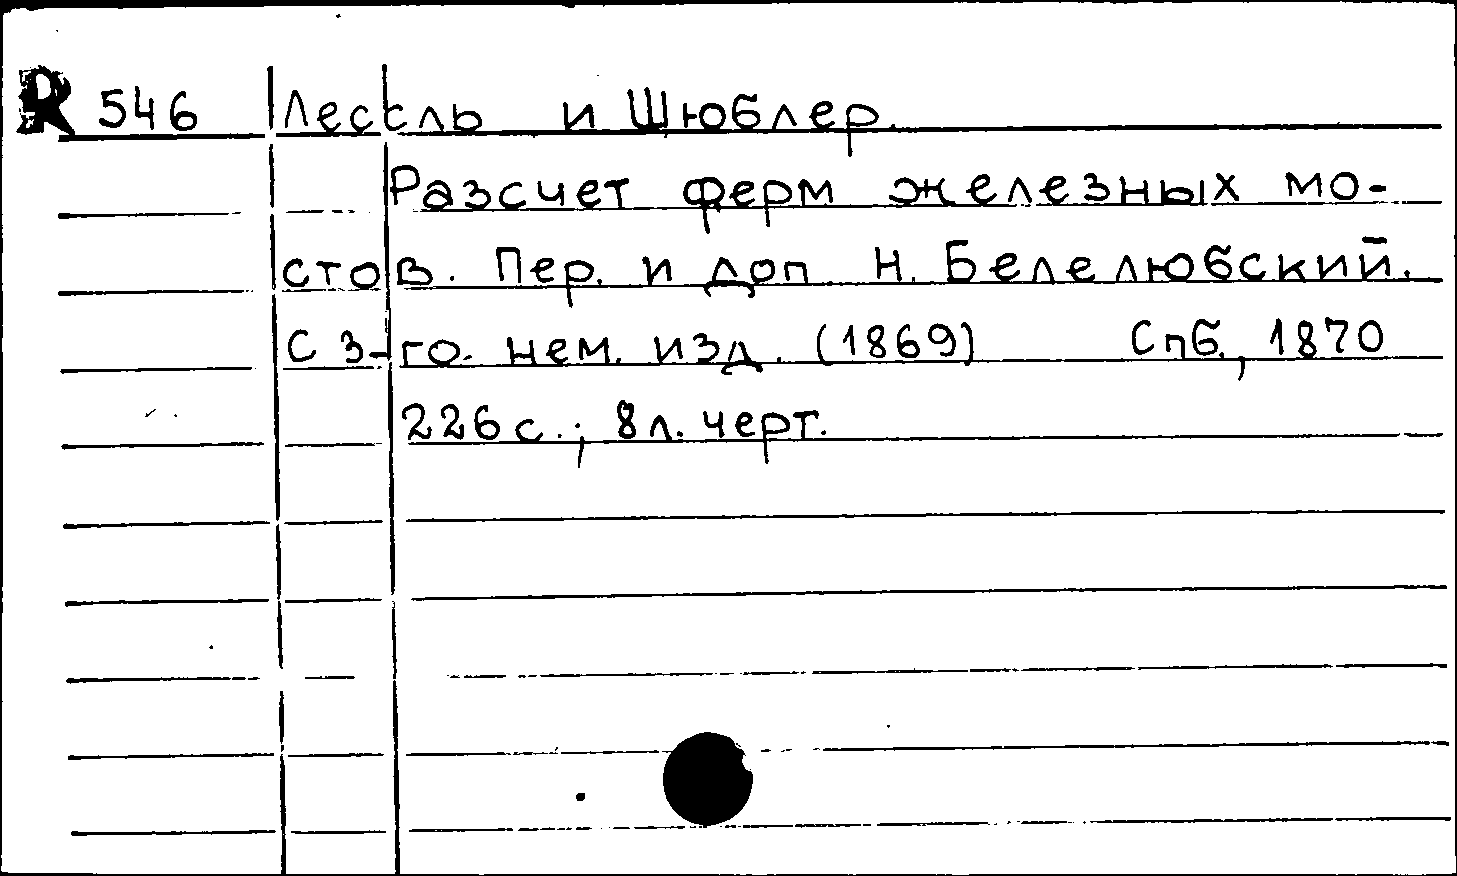 R 546 Лессль и Шюблер.
Разсчет ферм железных мо-
стов. Пер. и доп. Н. Белелюбский.
С 3-го нем. изд. (1869) Спб., 1870
226 с.; 8 л. черт.